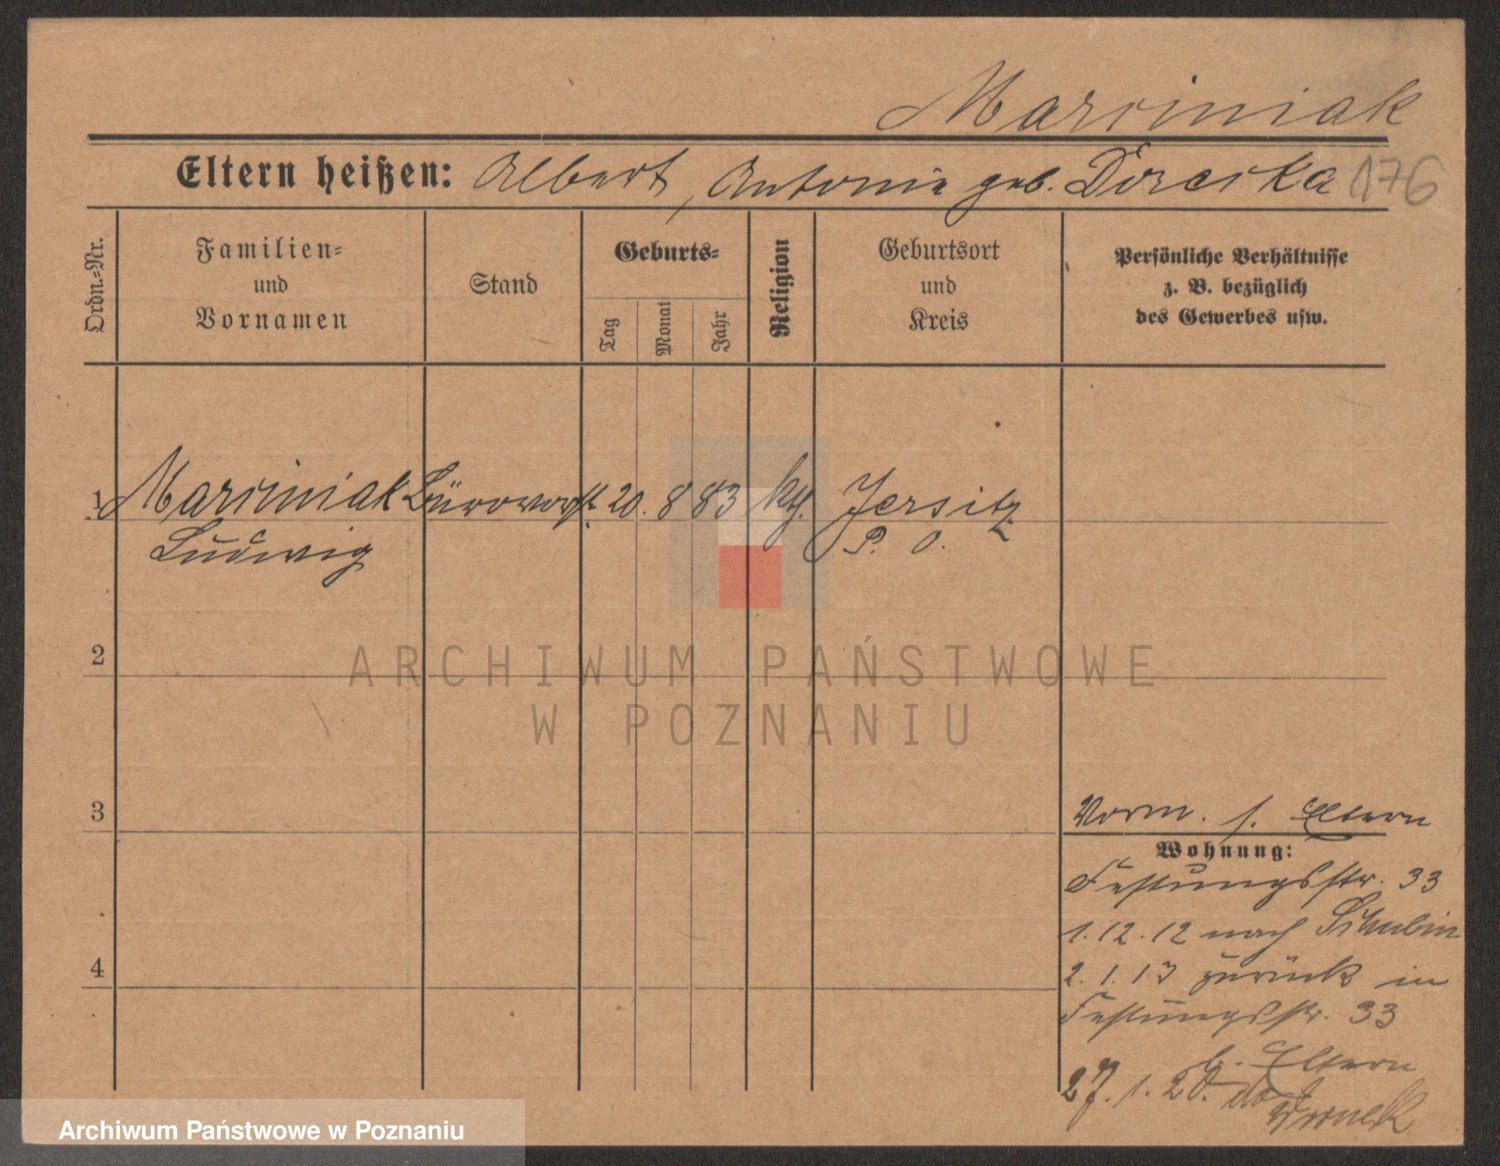 Marciniak
Eltern heißen: Albert, Antonie geb.
176
Ordn.-Nr.
Familien-
und
Vornamen
Stand
Geburts-
Tag
Monat
Jahr
Religion
Geburtsort
und
Kreis
Persönliche Verhältnisse
z. B. bezüglich
des Gewerbes usw.
1 Marciniak Bürovorst. 20. 8 83 kth. Jersitz
Ludwig P. O.
2
ARCHIWUM PAŃSTWOWE
W POZNANIU
3
Vorm. s. Eltern
Wohnung:
Festungsstr. 33
1.12.12 nach Schubin
2.1.13 zurück in
4
Festungsstr. 33
b. Eltern
27.1.20.
Archiwum Państwowe w Poznaniu